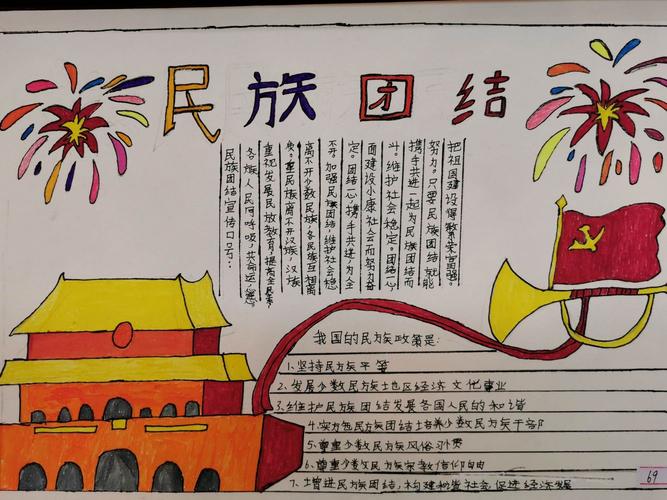 民族团结
民族团结宣传口号:
各族人民同呼吸,共命运,心连
重视发展民族教育,提高全民素
质。重民族离不开汉族,汉族
离不开少数民族,各民族互相离
不开。加强民族团结,维护社会稳
定。团结一心,携手共进,为全
面建设小康社会而努力奋
斗。维护社会稳定。团结一心
携手共进一起为民族团结而
努力。只要民族团结就能
把祖国建设得繁荣富强。
我国的民族政策是:
1、坚持民族平等
2、发展少数民族地区经济文化事业
3、维护民族团结发展各国人民的和谐
4、实力把民族团结培养少数民族干部
5、尊重少数民族风俗习惯
6、尊重少数民族宗教信仰自由
7、增进民族团结,构建和谐社会,促进经济发展
69